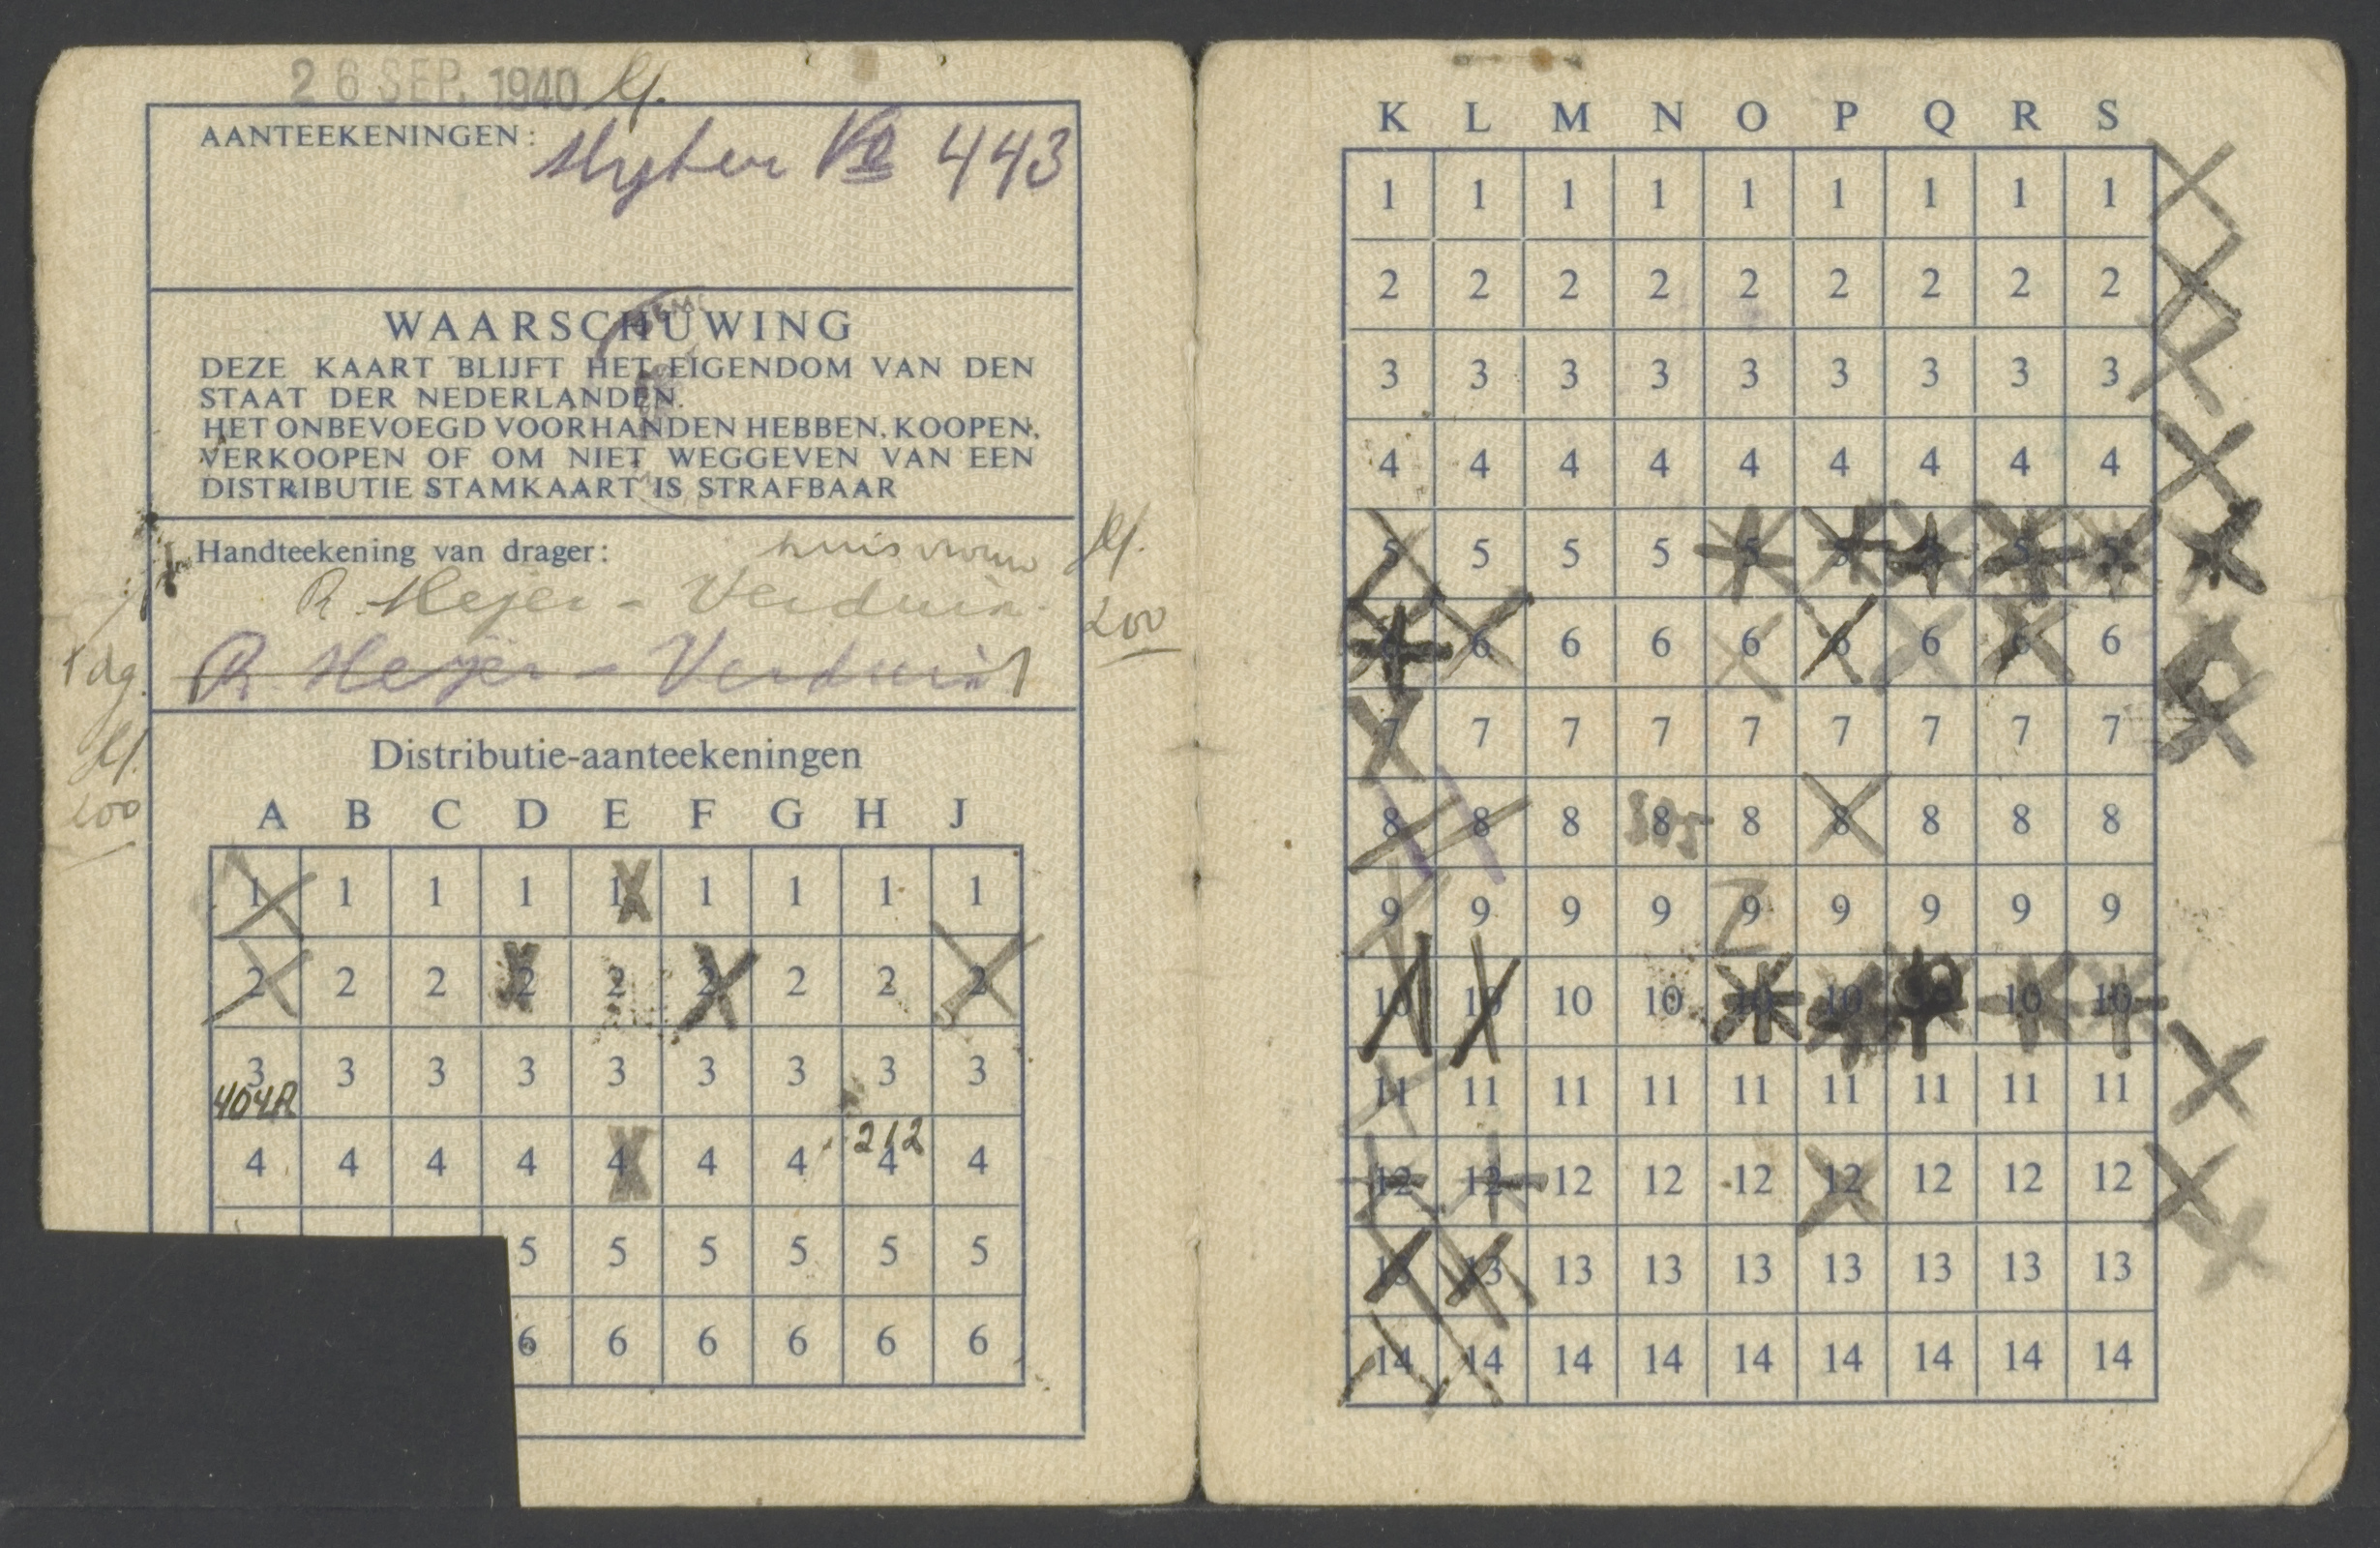 26 SEP. 1940
AANTEEKENINGEN:
443
WAARSCHUWING
DEZE KAART BLIJFT HET EIGENDOM VAN DEN
STAAT DER NEDERLANDEN.
HET ONBEVOEGD VOORHANDEN HEBBEN, KOOPEN,
VERKOOPEN OF OM NIET WEGGEVEN VAN EEN
DISTRIBUTIE STAMKAART IS STRAFBAAR
Handteekening van drager: huisvrouw
R. Meijer - Verduin
200
R. Meijer - Verduin
1 dg.
200
Distributie-aanteekeningen
A B C D E F G H J
1 1 1 1 1 1 1 1 1
2 2 2 2 2 2 2 2 2
3 3 3 3 3 3 3 3 3
404A
212
4 4 4 4 4 4 4 4 4
5 5 5 5 5 5
6 6 6 6 6 6
K L M N O P Q R S
1 1 1 1 1 1 1 1 1
2 2 2 2 2 2 2 2 2
3 3 3 3 3 3 3 3 3
4 4 4 4 4 4 4 4 4
5 5 5 5 5 5 5 5 5
6 6 6 6 6 6 6 6 6
7 7 7 7 7 7 7 7 7
8 8 8 8 8 8 8 8 8
9 9 9 9 9 9 9 9 9
10 10 10 10 10 10 10 10 10
11 11 11 11 11 11 11 11 11
12 12 12 12 12 12 12 12 12
13 13 13 13 13 13 13 13 13
14 14 14 14 14 14 14 14 14